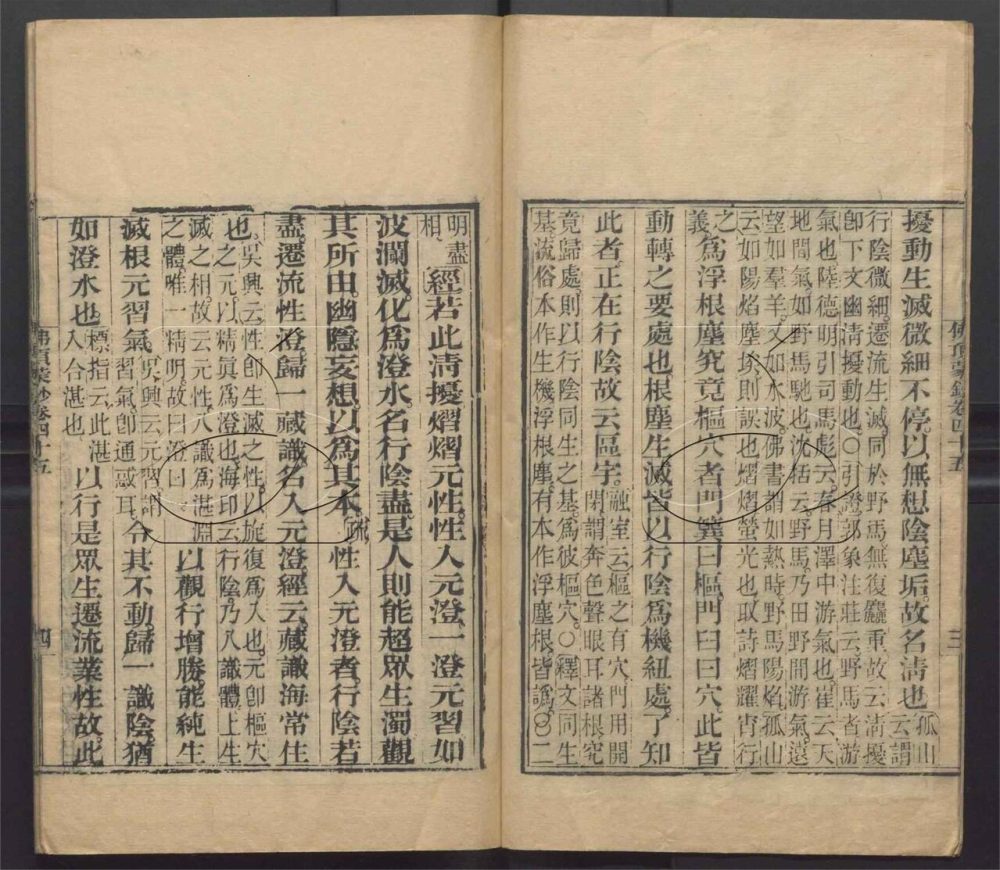 擾動生滅微細不停。以無想陰塵垢。故名清也。孤山
云謂
行陰微細。遷流生滅。同於野馬。無復麤重。故云清擾
卽下文幽清擾動也。〇引證郭象注莊云。野馬者。游
氣也。陸德明引司馬彪云。春月澤中游氣也。崔云。天
地間氣。如野馬馳也。沈括云。野馬乃田野間游氣。遠
望如羣羊。又如水波。佛書謂如熱時野馬陽焰。孤山
云。如陽焰塵埃則誤也。熠熠螢光也。取詩熠耀宵行
之
義
爲浮根塵究竟樞穴者。門簨曰樞。門臼曰穴。此皆
動轉之要處也。根塵生滅皆以行陰爲機紐處。了知
此者。正在行陰。故云區宇。融室云。樞之有穴。門用開
閉。謂奔色聲。眼耳諸根。究
竟歸處。則以行陰同生之基。爲彼樞穴。〇釋文同生
基。流俗本作生機。浮根塵。有本作浮塵根。皆譌。〇二
佛頂蒙鈔卷四十五
三
明盡
相
經若此清擾熠熠元性。性入元澄。一澄元習。如
波瀾滅。化爲澄水。名行陰盡。是人則能超眾生濁。觀
其所由。幽隱妄想以爲其本。疏性入元澄者。行陰若
盡。遷流性澄。歸一藏識。名入元澄。經云。藏識海常住
也。吳興云。性卽生滅之性。以旋復爲入也。元卽樞穴
之元。以精眞爲澄也。海印云。行陰乃八識體上生
滅之相。故云元性。八識爲湛淵
之體。唯一精明。故曰澄曰。
以觀行增勝。能純生
滅根元習氣。吳興云。元習謂
習氣。卽通惑耳。
令其不動。歸一識陰。猶
如澄水也。標指云。此湛
入合湛也。
以行是眾生遷流業性。故此
佛頂蒙鈔卷四十五
四